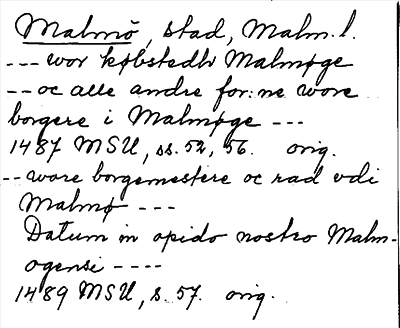 Malmö, stad, Malm. l.
--- wor købstedh Malmøge
-- oc alle andre for:ne wore
borgere i Malmøge ---
1487 MSU, ss. 52, 56. orig.
-- ware borgemestere oc rad vdi
Malmø ---
Datum in opido nostro Malm-
ogensi ----
1489 MSU, s. 57. orig.